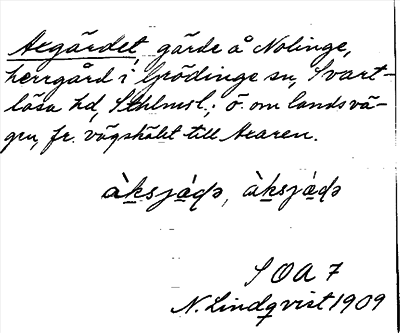 Axgärdet, gärde å Nolinge,
herrgård i Grödinge sn, Svart-
lösa hd, Sthlmsl.; ö. om landsvä-
gen, fr. vägskälet till Axaren.
àksjá̤ḍə, àksjá̤ḍə
S O A 7
N. Lindqvist 1909